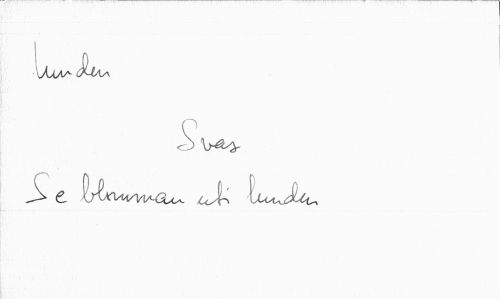 lunden
Svas
Se blomman uti lunden